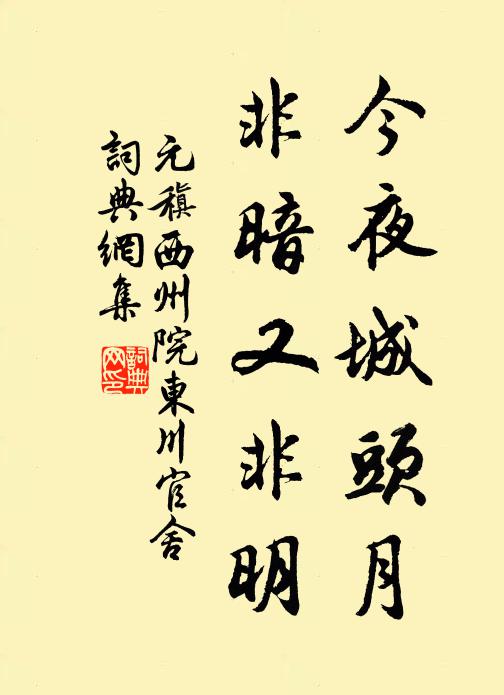 今夜城頭月
非暗又非明
元稹西州院東川官舍
詞典網集
詞典
网印